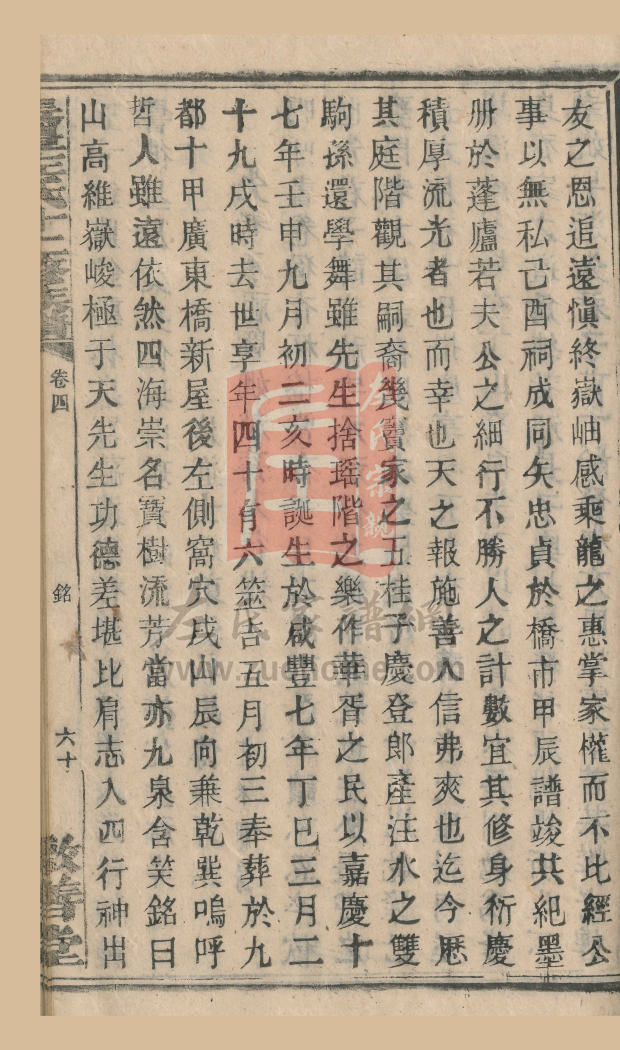 友之恩追遠慎終嶽岫感乘龍之惠掌家權而不比經公
事以無私己酉祠成同矢忠貞於橋市甲辰譜竣共紀墨
册於蓬廬若夫公之細行不勝人之計數宜其修身衍慶
積厚流光者也而幸也天之報施善人信弗爽也迄今歷
其庭階觀其嗣裔幾竇家之五桂子慶登郎產注水之雙
駒孫還學舞雖先生捨瑶階之樂作華胥之民以嘉慶十
七年壬申九月初二亥時誕生於咸豐七年丁巳三月二
十九戌時去世享年四十有六筮吉五月初三奉葬於九
都十甲廣東橋新屋後左側窩穴戌山辰向兼乾巽嗚呼
哲人雖遠依然四海崇名寶樹流芳當亦九泉含笑銘曰
山高維嶽峻極于天先生功德差堪比肩志入四行神出
卷四
銘
六十
敬善堂
www.
.com